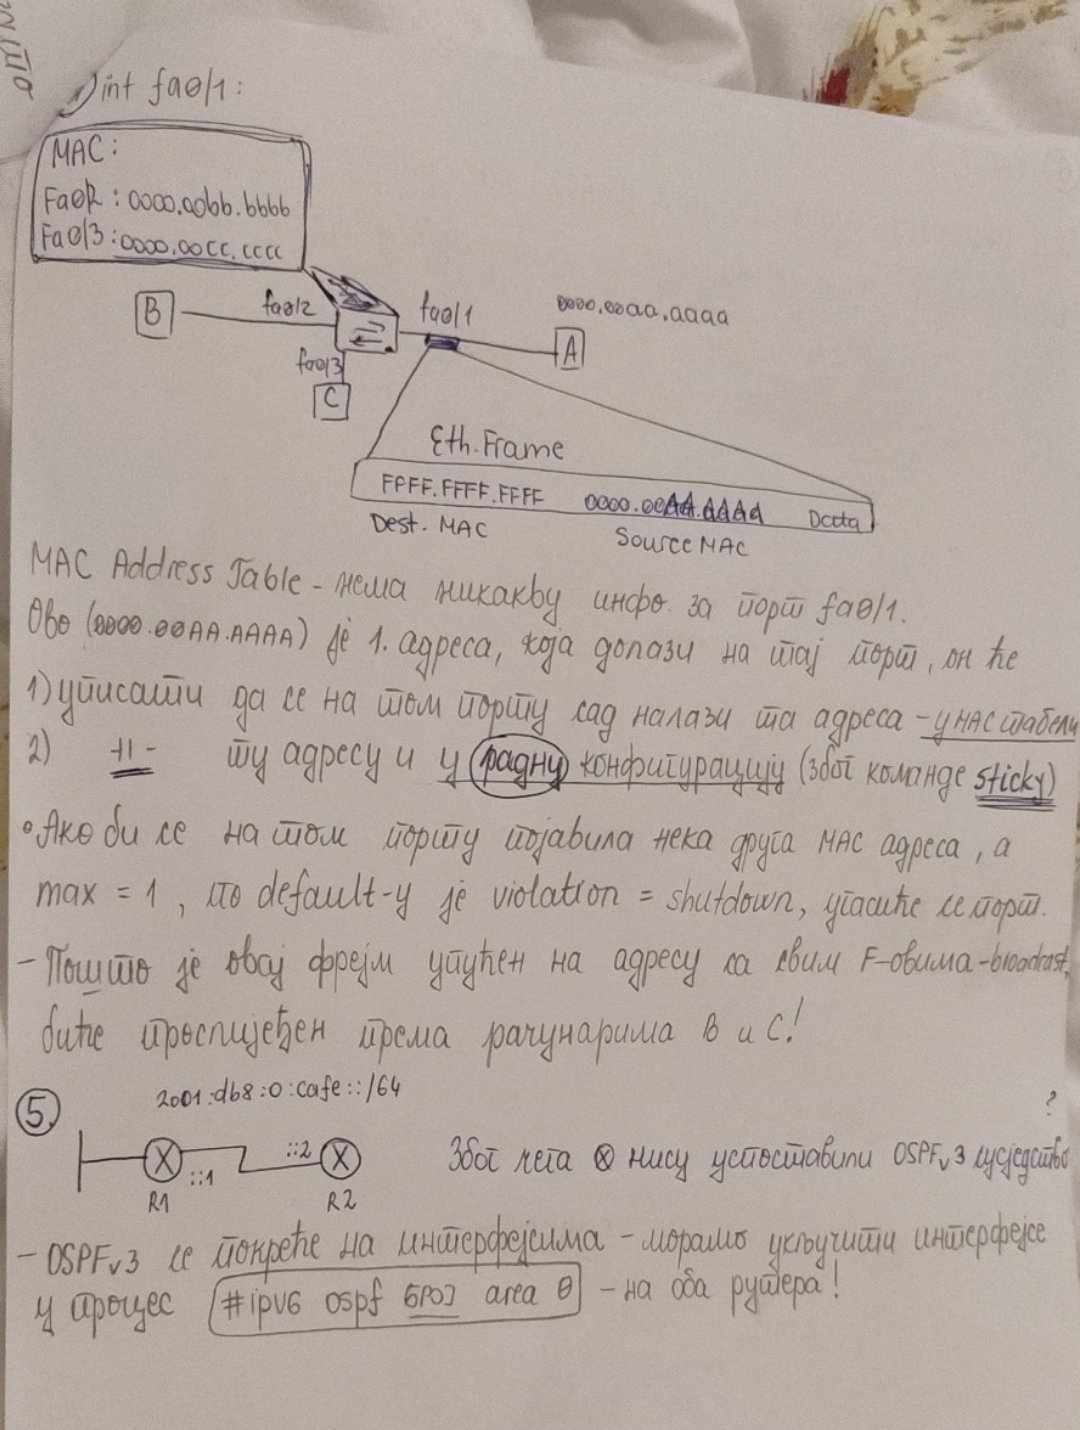 int fa0/1:
MAC:
Fa0/2: 0000.00bb.bbbb
Fa0/3: 0000.00cc.cccc
B
fa0/2
fa0/1
0000.00aa.aaaa
A
fa0/3
C
Eth. Frame
FFFF.FFFF.FFFF 0000.00AA.AAAA Data
Dest. MAC Source MAC
MAC Address Table - нема никакву инфо за порт fa0/1.
Ово (0000.00AA.AAAA) је 1. адреса, која долази на тај порт, он ће
1) уписати да се на том порту сад налази та адреса - у MAC табели
2) -||- ту адресу и у радну конфигурацију (због команде sticky)
• Ако би се на том порту појавила нека друга MAC адреса, а
max = 1, по default-у је violation = shutdown, угасиће се порт.
- Пошто је овај фрејм упућен на адресу са свим F-овима - broadcast,
биће просљеђен према рачунарима B и C!
5. 2001:db8:0:cafe::/64
::1 ::2
R1 R2
Због чега нису успоставили OSPFv3 сусједство?
- OSPFv3 се покреће на интерфејсима - морамо укључити интерфејсе
у процес #ipv6 ospf БРОЈ area 0 - на оба рутера!